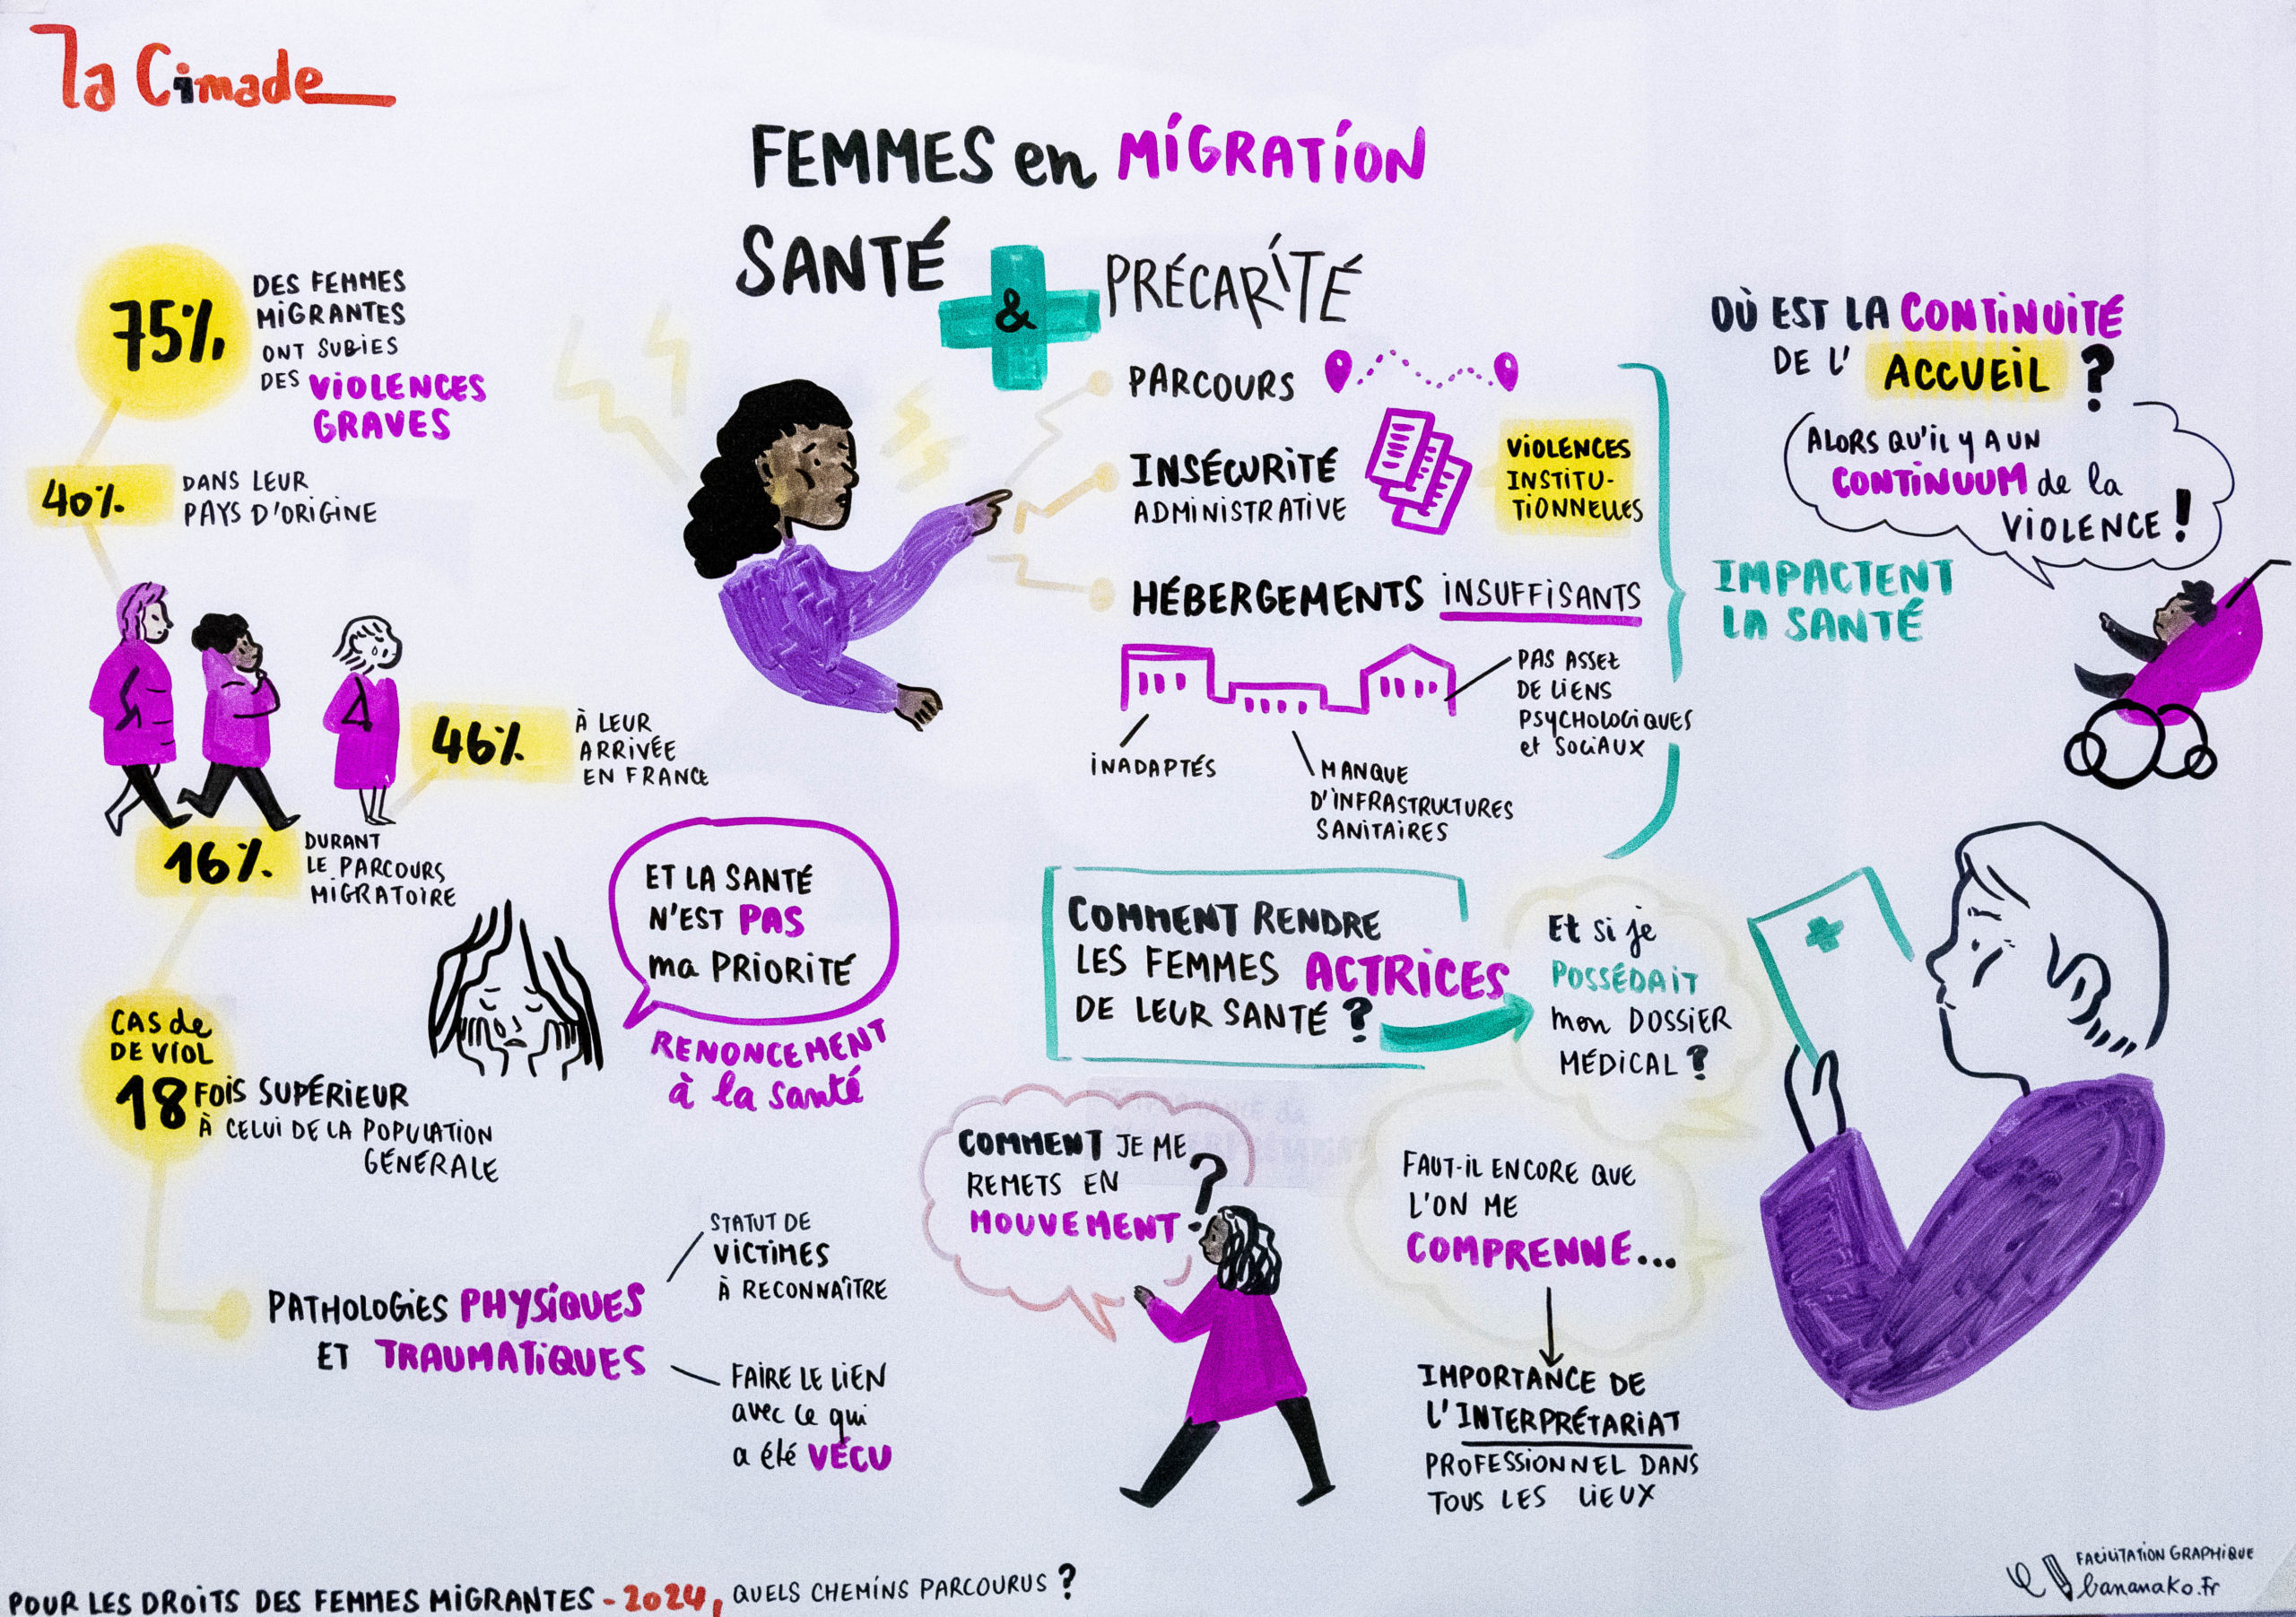 la Cimade
FEMMES en MIGRATION
SANTÉ & PRÉCARITÉ
75%
DES FEMMES
MIGRANTES
ONT SUBIES
DES VIOLENCES
GRAVES
40%
DANS LEUR
PAYS D'ORIGINE
46%
À LEUR
ARRIVÉE
EN FRANCE
16%
DURANT
LE PARCOURS
MIGRATOIRE
CAS de
DE VIOL
18 FOIS SUPÉRIEUR
À CELUI DE LA POPULATION
GÉNÉRALE
ET LA SANTÉ
N'EST PAS
ma PRIORITÉ
RENONCEMENT
à la santé
PATHOLOGIES PHYSIQUES
ET TRAUMATIQUES
STATUT DE
VICTIMES
À RECONNAÎTRE
FAIRE LE LIEN
avec ce qui
a été VÉCU
PARCOURS
INSÉCURITÉ
ADMINISTRATIVE
VIOLENCES
INSTITU-
TIONNELLES
HÉBERGEMENTS INSUFFISANTS
INADAPTÉS
MANQUE
D'INFRASTRUCTURES
SANITAIRES
PAS ASSEZ
DE LIENS
PSYCHOLOGIQUES
et SOCIAUX
IMPACTENT
LA SANTÉ
OÙ EST LA CONTINUITÉ
DE L' ACCUEIL ?
ALORS QU'IL Y A UN
CONTINUUM de la
VIOLENCE !
COMMENT RENDRE
LES FEMMES ACTRICES
DE LEUR SANTÉ ?
Et si je
POSSÉDAIT
mon DOSSIER
MÉDICAL ?
COMMENT JE ME
REMETS EN
MOUVEMENT ?
FAUT-IL ENCORE QUE
L'ON ME
COMPRENNE...
IMPORTANCE DE
L'INTERPRÉTARIAT
PROFESSIONNEL DANS
TOUS LES LIEUX
POUR LES DROITS DES FEMMES MIGRANTES - 2024, QUELS CHEMINS PARCOURUS ?
FACILITATION GRAPHIQUE
bananako.fr